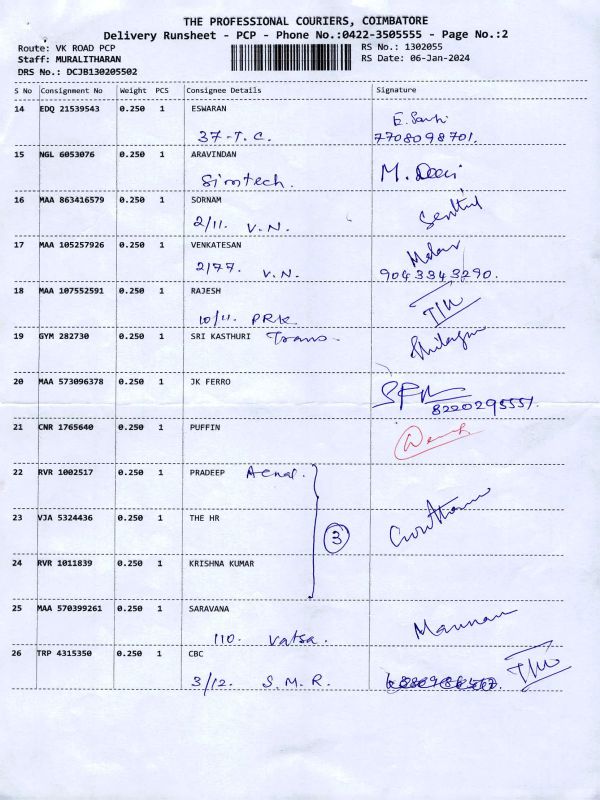 THE PROFESSIONAL COURIERS, COIMBATORE
Delivery Runsheet - PCP - Phone No.:0422-3505555 - Page No.:2
Route: VK ROAD PCP RS No.: 1302055
Staff: MURALITHARAN RS Date: 06-Jan-2024
DRS No.: DCJB130205502
S No Consignment No Weight PCS Consignee Details Signature
14 EDQ 21539543 0.250 1 ESWARAN
37-T.C. 7708098701.
15 NGL 6053076 0.250 1 ARAVINDAN
Simtech.
16 MAA 863416579 0.250 1 SORNAM
2/11. V.N.
17 MAA 105257926 0.250 1 VENKATESAN
2/77. V.N. 9043343290.
18 MAA 107552591 0.250 1 RAJESH
10/11. PRK.
19 GYM 282730 0.250 1 SRI KASTHURI Trans.
20 MAA 573096378 0.250 1 JK FERRO
8220295551.
21 CNR 1765640 0.250 1 PUFFIN
22 RVR 1002517 0.250 1 PRADEEP
23 VJA 5324436 0.250 1 THE HR
3
24 RVR 1011839 0.250 1 KRISHNA KUMAR
25 MAA 570399261 0.250 1 SARAVANA
110. Vatsa.
26 TRP 4315350 0.250 1 CBC
3/12. S.M.R.